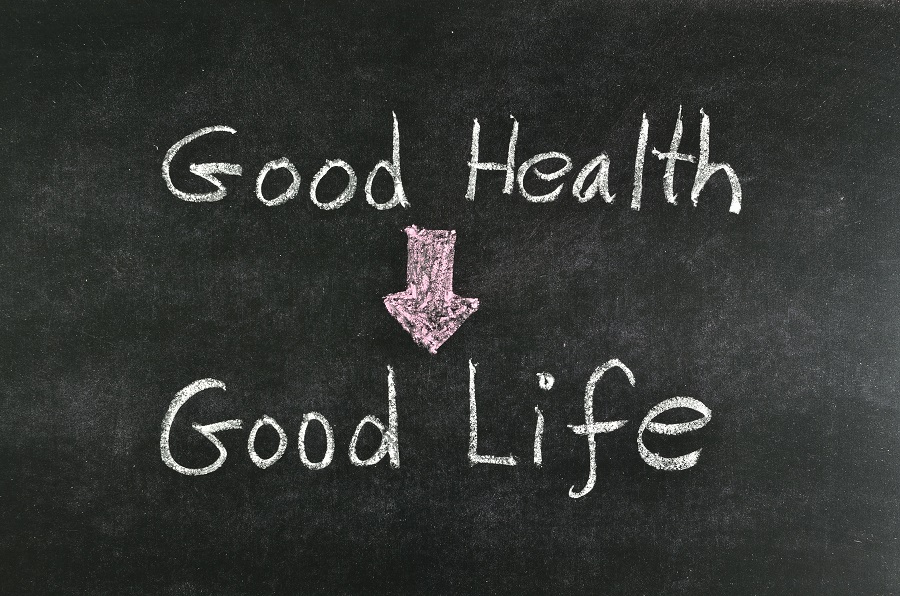 Good Health
Good Life